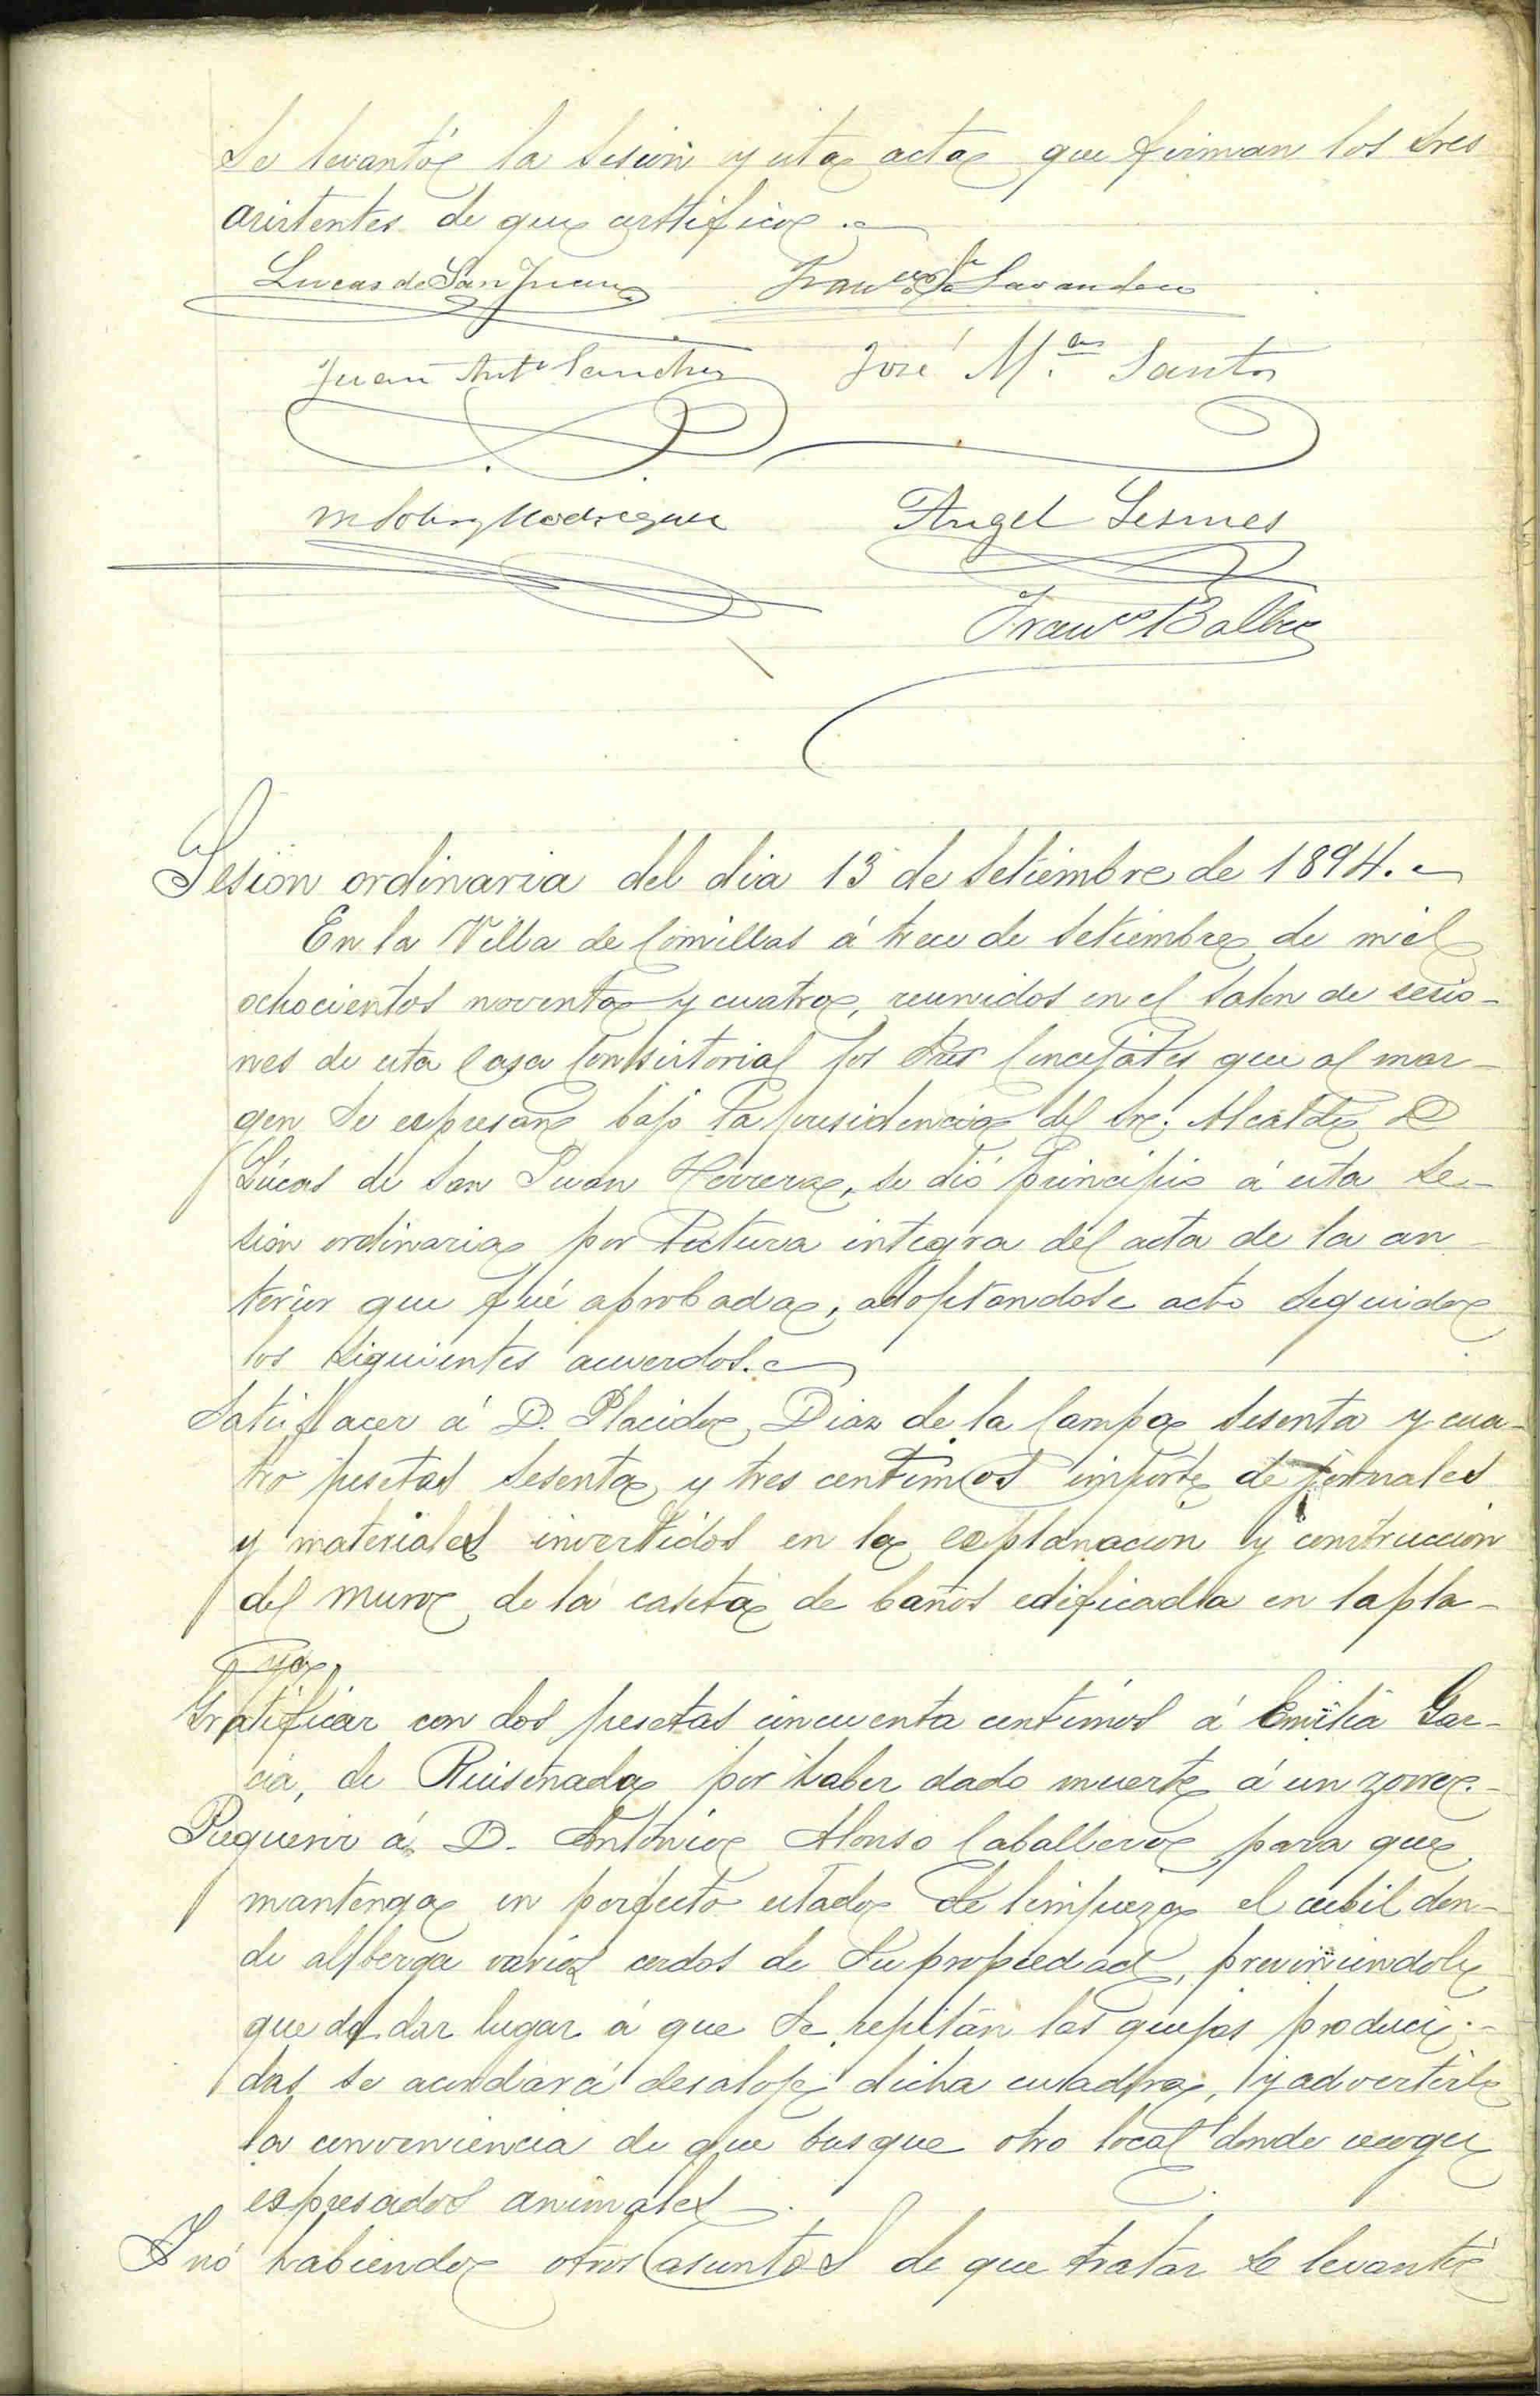 Se levantó la sesion y esta acta que firman los Sres
asistentes de que certifico.
Lucas de San Juan Franco Lavandero
Juan Anto Sanchez José M.a Santos
Rodriguez Angel Lesmes
Franco Balbas
Sesion ordinaria del dia 13 de Setiembre de 1894.
En la Villa de Comillas á trece de Setiembre de mil
ochocientos noventa y cuatro, reunidos en el salon de sesio-
nes de esta Casa Consistorial los Sres Concejales que al mar-
gen se espresan bajo la presidencia del Sr. Alcalde D
Lúcas de San Juan Herrera, se dió principio á esta se-
sion ordinaria por lectura integra del acta de la an-
terior que fué aprobada, adoptandose acto seguido
los siguientes acuerdos.
Satisfacer á D. Placido Diaz de la Campa sesenta y cua-
tro pesetas sesenta y tres centimos importe de jornales
y materiales invertidos en la esplanacion y construccion
del muro de la caseta de baños edificada en la pla-
ya.
Gratificar con dos pesetas cincuenta centimos á Emilia Gar-
cia, de Ruiseñada por haber dado muerte á un zorro.-
Requerir á D. Antonio Alonso Caballero para que
mantenga en perfecto estado de limpieza el cubil don-
de alberga varios cerdos de su propiedad, previniendole
que de dar lugar á que se repitan las quejas produci-
das se acordará desaloje dicha cuadra, y advertirle
la conveniencia de que busque otro local donde recoger
espresados animales.
Y nó habiendo otros asuntos de que tratar se levantó